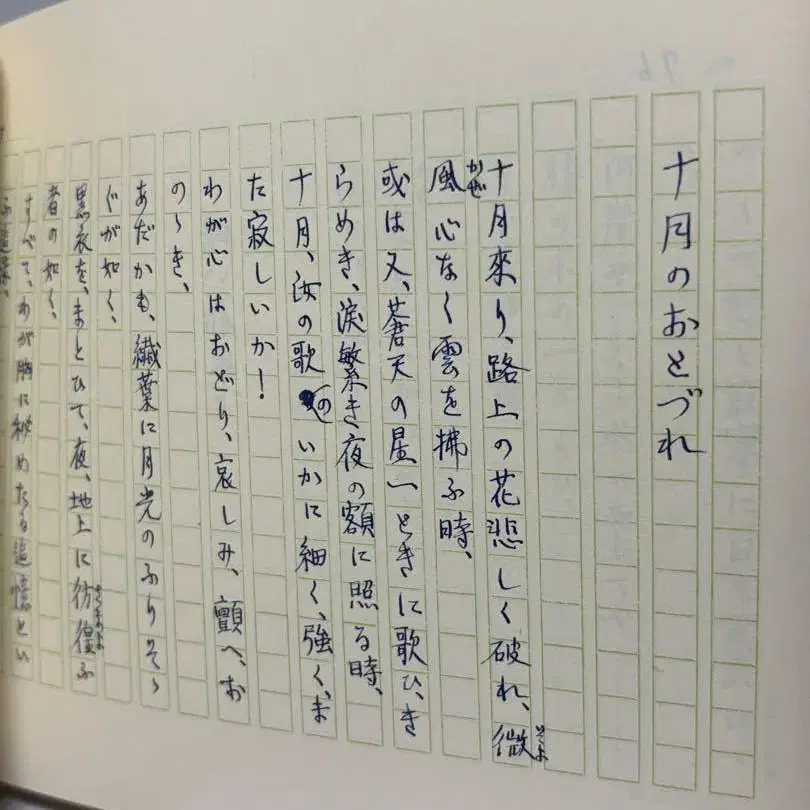 十月のおとづれ
十月來り、路上の花悲しく破れ、微
風心なく雲を拂ふ時、
或は又、蒼天の星一ときに歌ひ、き
らめき、涙繁き夜の額に照る時、
十月、汝の歌のいかに細く、強く、ま
た寂しいか!
わが心はおどり、哀しみ、顫へ、お
のゝき、
あだかも、繊葉に月光のふりそゝ
ぐが如く、
黒衣を、まとひて、夜、地上に彷徨ふ
者の如く、
すべて、わが胸に秘めたる追憶とい